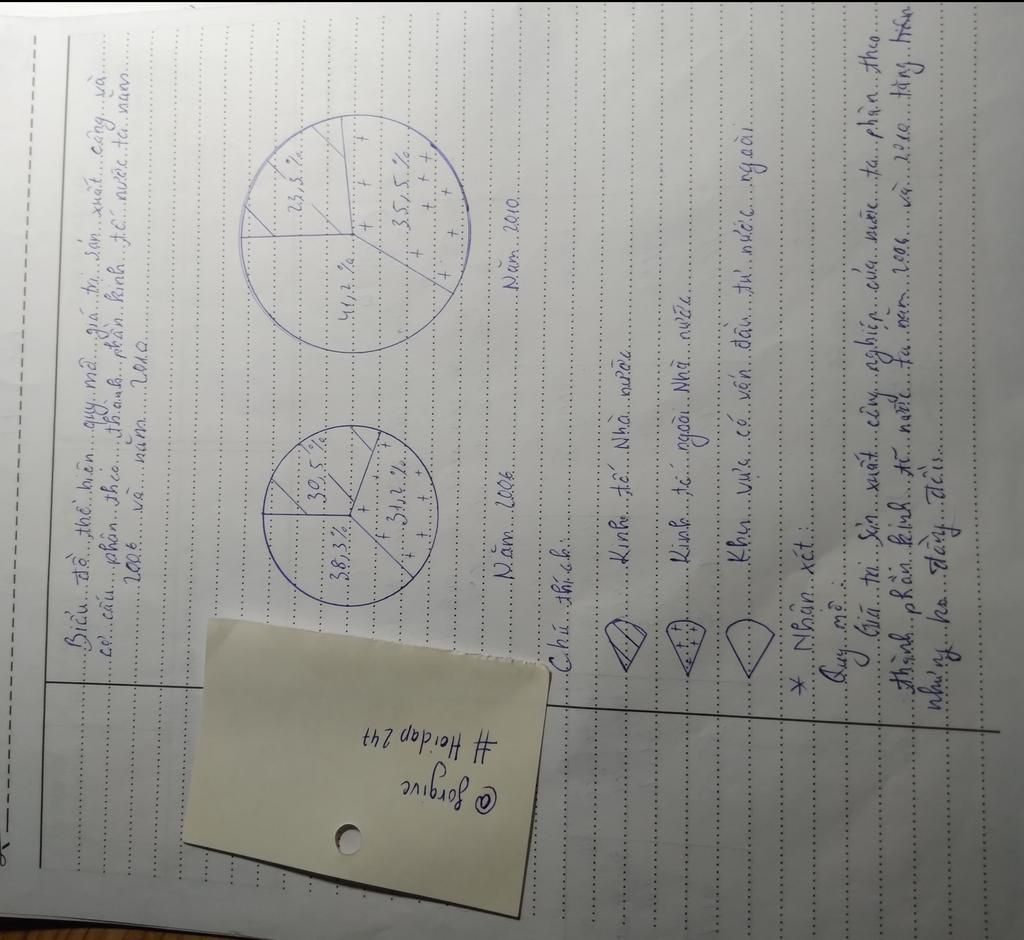 Biểu đồ thể hiện quy mô giá trị sản xuất công và
cơ cấu phân theo thành phần kinh tế nước ta năm
2006 và năm 2010.
38,3%
30,5%
31,2%
41,2%
23,5%
35,5%
Năm 2006.
Năm 2010.
Chú thích:
Kinh tế Nhà nước.
Kinh tế ngoài Nhà nước.
Khu vực có vốn đầu tư nước ngoài.
* Nhận xét:
Quy mô:
Giá trị sản xuất công nghiệp của nước ta phân theo
thành phần kinh tế nước ta năm 2006 và 2010 tăng
nhưng ko đồng đều.
@forgive
# Hoidap247